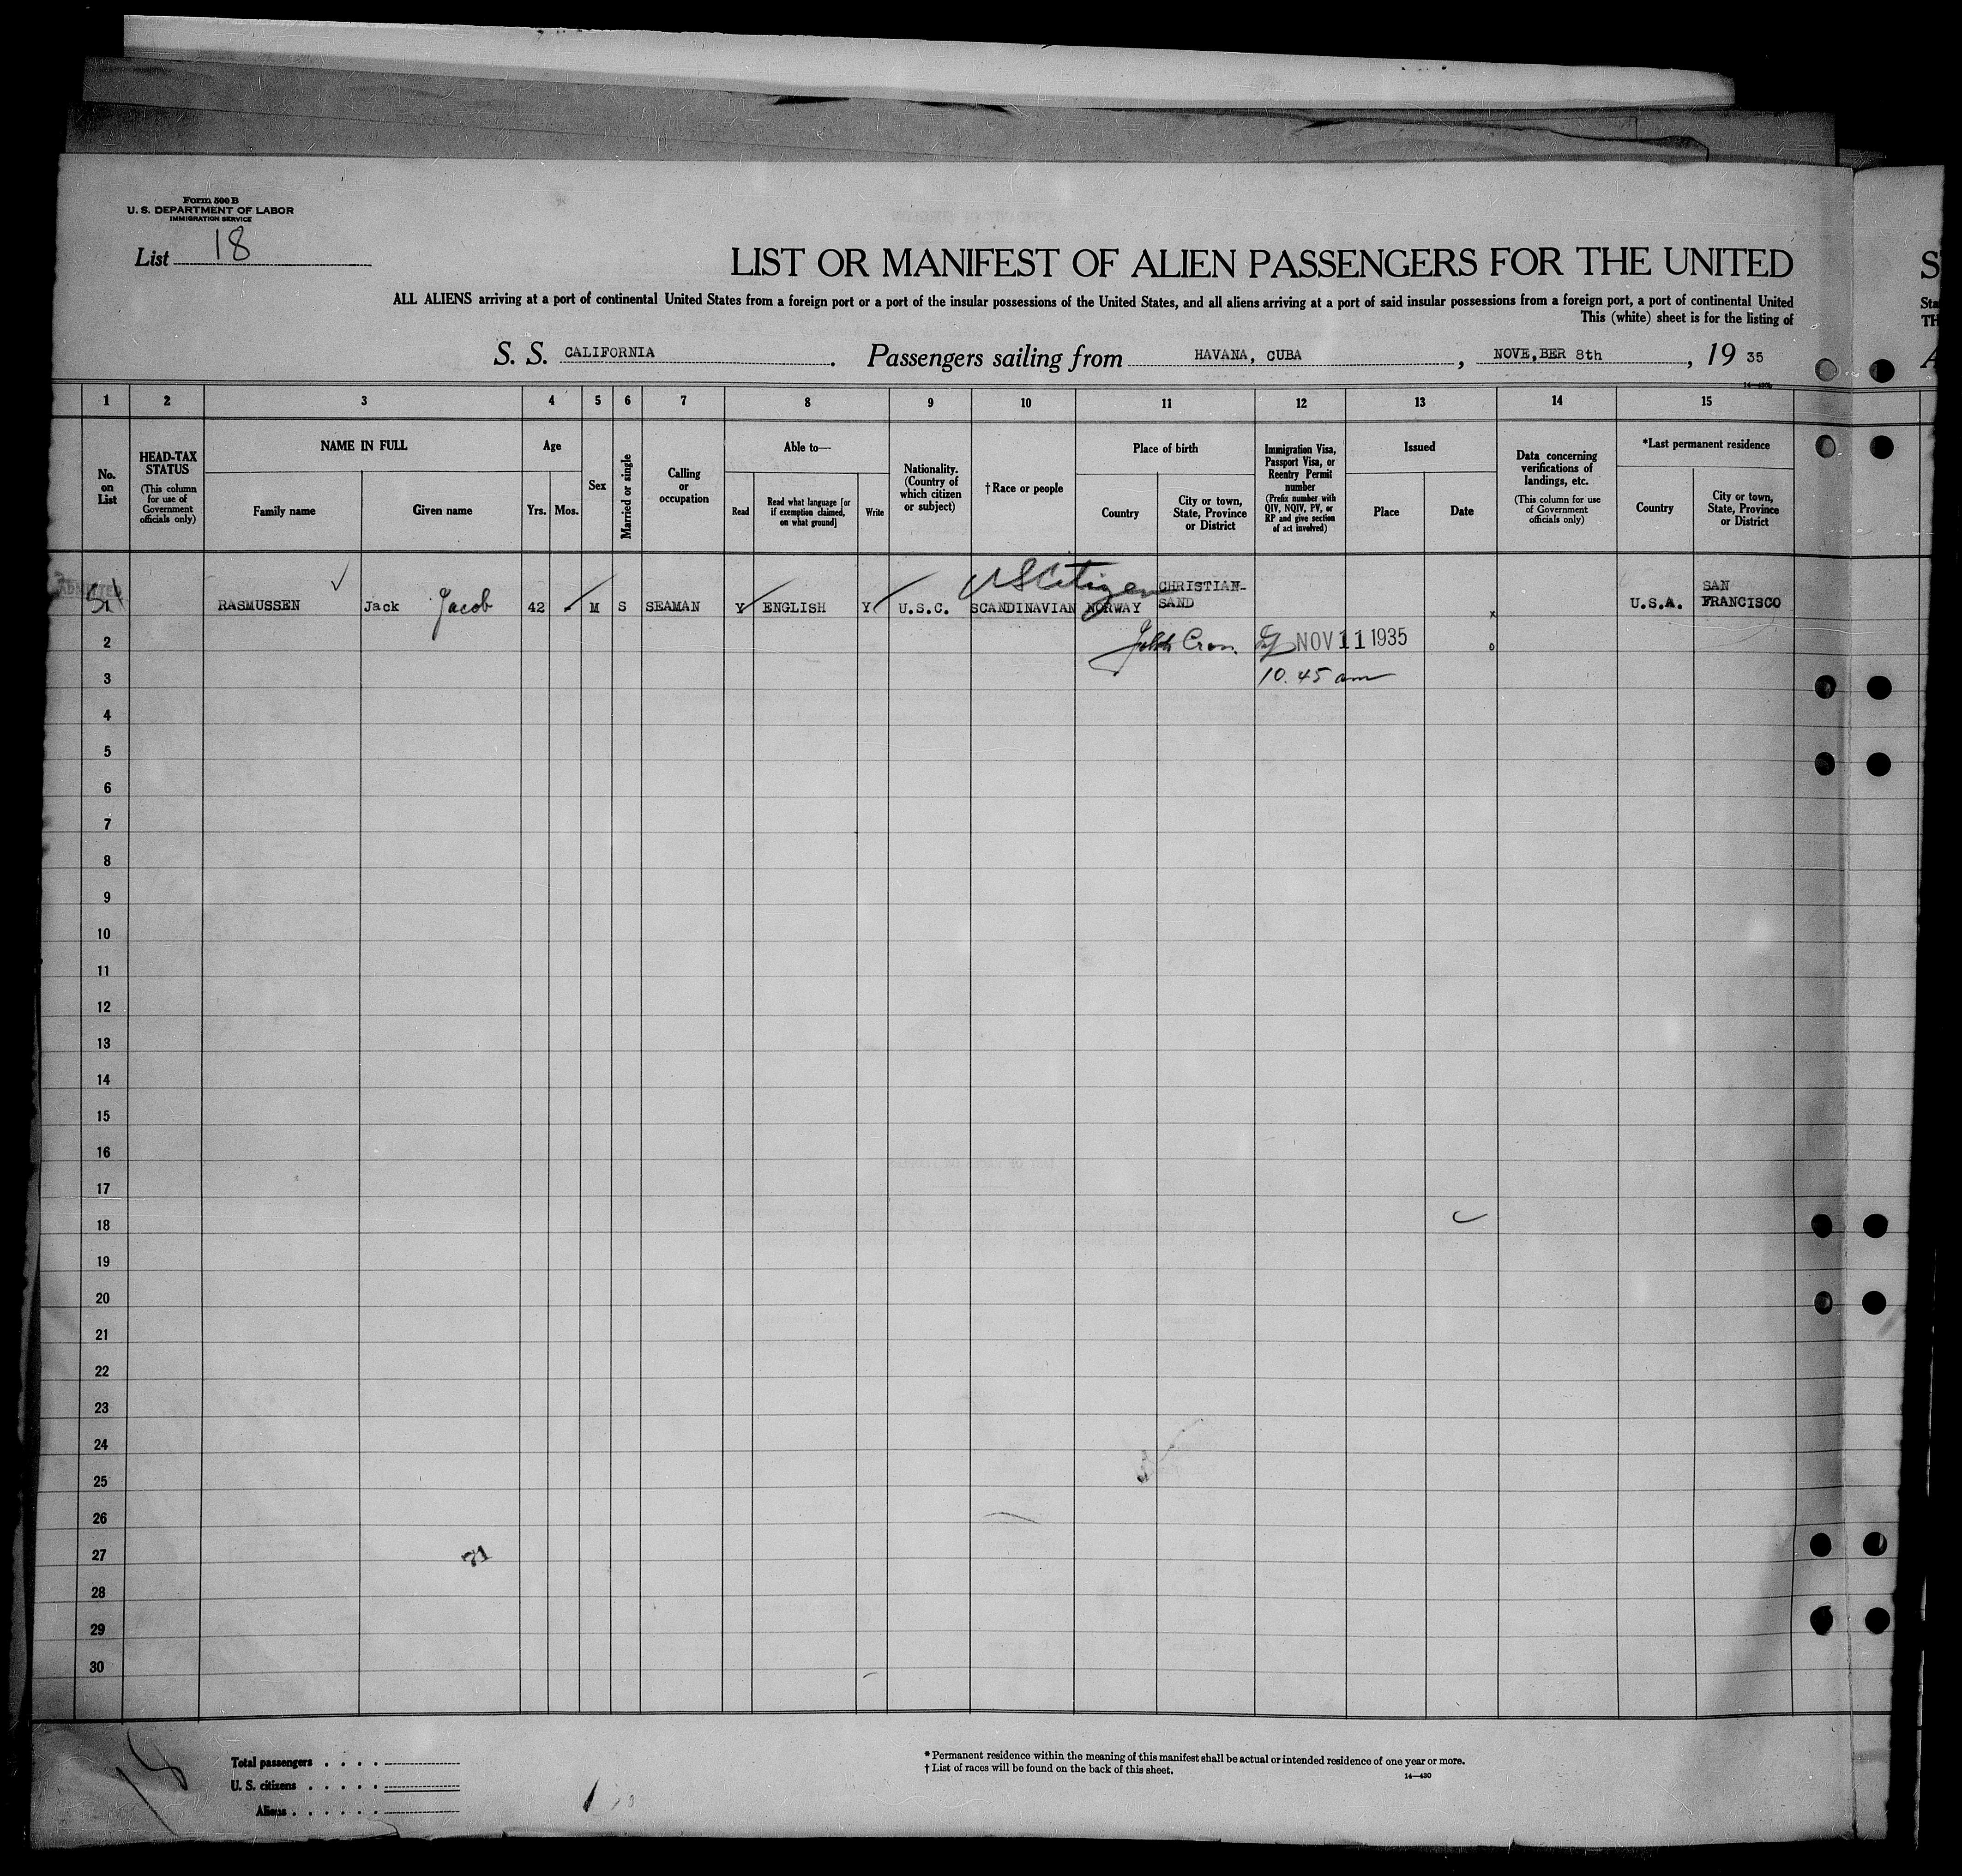 Form 500 B
U. S. DEPARTMENT OF LABOR
IMMIGRATION SERVICE
List 18
LIST OR MANIFEST OF ALIEN PASSENGERS FOR THE UNITED
ALL ALIENS arriving at a port of continental United States from a foreign port or a port of the insular possessions of the United States, and all aliens arriving at a port of said insular possessions from a foreign port, a port of continental United
This (white) sheet is for the listing of
S. S. CALIFORNIA . Passengers sailing from HAVANA, CUBA , NOVE,BER 8th , 19 35
1 2 3 4 5 6 7 8 9 10 11 12 13 14 15
No. on List
HEAD-TAX STATUS
(This column for use of Government officials only)
NAME IN FULL
Family name
Given name
Age
Yrs. Mos.
Sex
Married or single
Calling or occupation
Able to—
Read
Read what language [or if exemption claimed, on what ground]
Write
Nationality. (Country of which citizen or subject)
†Race or people
Place of birth
Country
City or town, State, Province or District
Immigration Visa, Passport Visa, or Reentry Permit number
(Prefix number with QIV, NQIV, PV, or RP and give section of act involved)
Issued
Place
Date
Data concerning verifications of landings, etc.
(This column for use of Government officials only)
*Last permanent residence
Country
City or town, State, Province or District
ADMITTED
US Citizen
CHRISTIAN- SAN
RASMUSSEN Jack Jacob 42 M S SEAMAN Y ENGLISH Y U.S.C. SCANDINAVIAN NORWAY SAND x U.S.A. FRANCISCO
2 NOV 11 1935 o
3 10.45 am
4
5
6
7
8
9
10
11
12
13
14
15
16
17
18
19
20
21
22
23
24
25
26
27
28
29
30
71
18
Total passengers
U. S. citizens
Aliens
1
* Permanent residence within the meaning of this manifest shall be actual or intended residence of one year or more.
† List of races will be found on the back of this sheet.
14—430